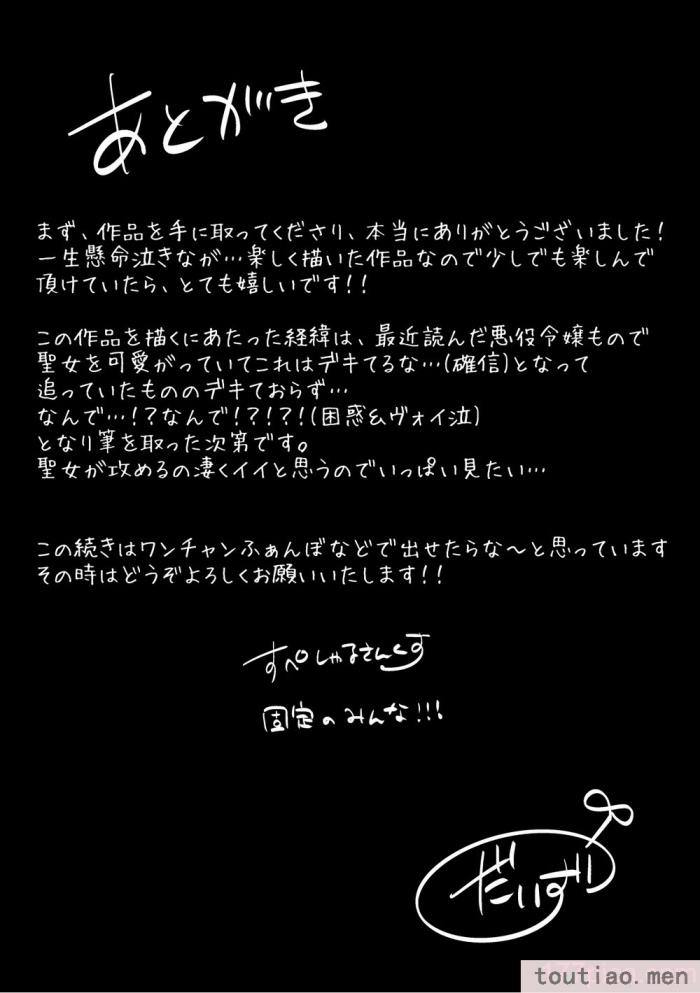 あとがき
まず、作品を手に取ってくださり、本当にありがとうございました!
一生懸命泣きなが…楽しく描いた作品なので少しでも楽しんで
頂けていたら、とても嬉しいです!!
この作品を描くにあたった経緯は、最近読んだ悪役令嬢もので
聖女を可愛がっていてこれはデキてるな…(確信)となって
追っていたもののデキておらず…
なんで…!?なんで!?!?!(困惑&ヴォイ泣)
となり筆を取った次第です。
聖女が攻めるの凄くイイと思うのでいっぱい見たい…
この続きはワンチャンふぁんぼなどで出せたらな〜と思っています
その時はどうぞよろしくお願いいたします!!
すぺしゃるさんくす
固定のみんな!!!
だいず
toutiao.men